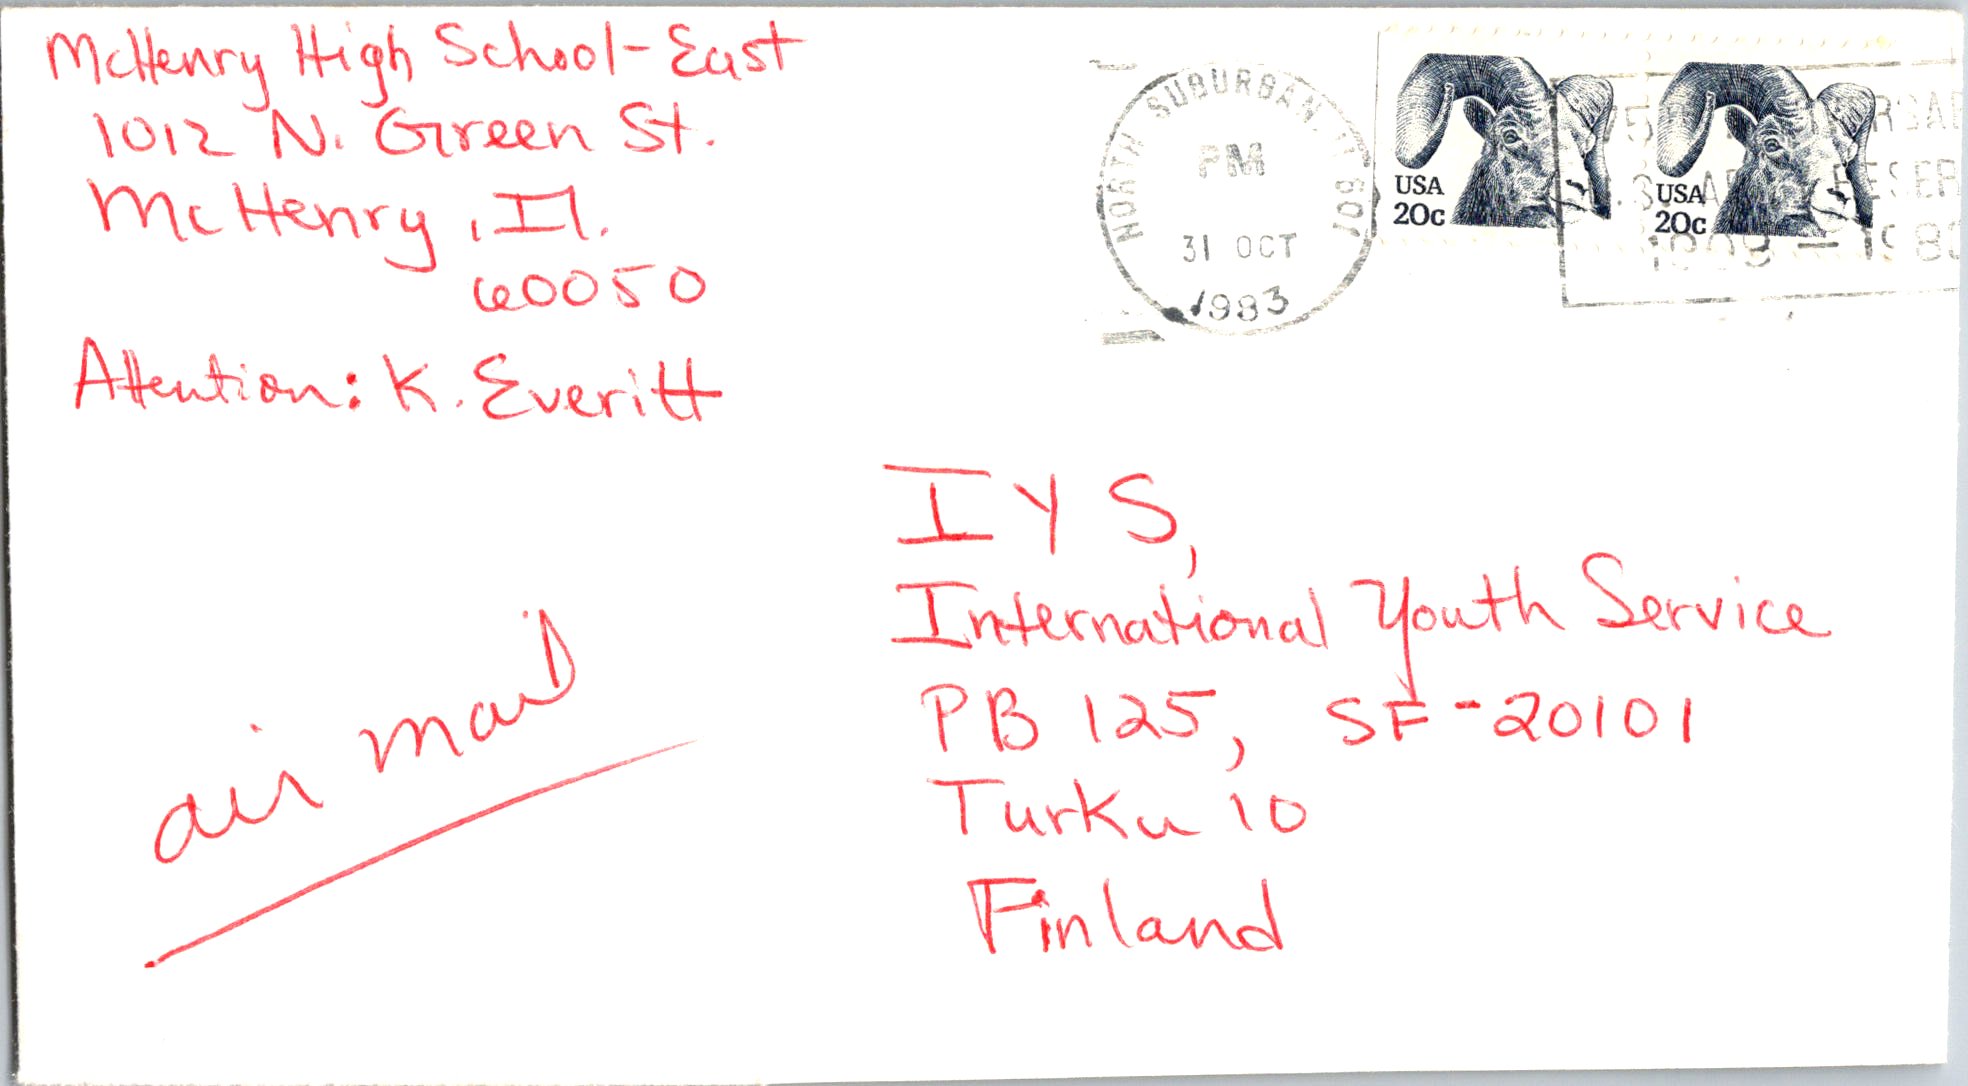 McHenry High School-East
1012 N. Green St.
McHenry, Il.
60050
Attention: K. Everitt
NORTH SUBURBAN, IL 601
PM
31 OCT
1983
USA
20c
USA
20c
1908 - 1983
air mail
IYS,
International Youth Service
PB 125, SF-20101
Turku 10
Finland